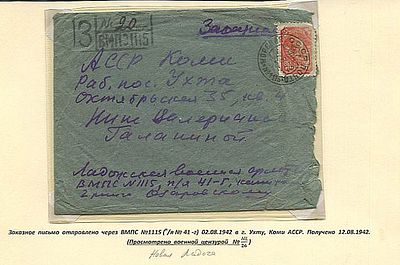 З № 20
ВМПС 1115
Заказное
АССР Коми
Раб. пос. Ухта
Октябрьская 35, кв. 4
Галаниной
Ладожская военная
ВМПС №1115, п/я 41-Г,
Заказное письмо отправлено через ВМПС №1115 (п/я № 41-г) 02.08.1942 в г. Ухту, Коми АССР. Получено 12.08.1942.
(Просмотрено военной цензурой №
Новая Ладога